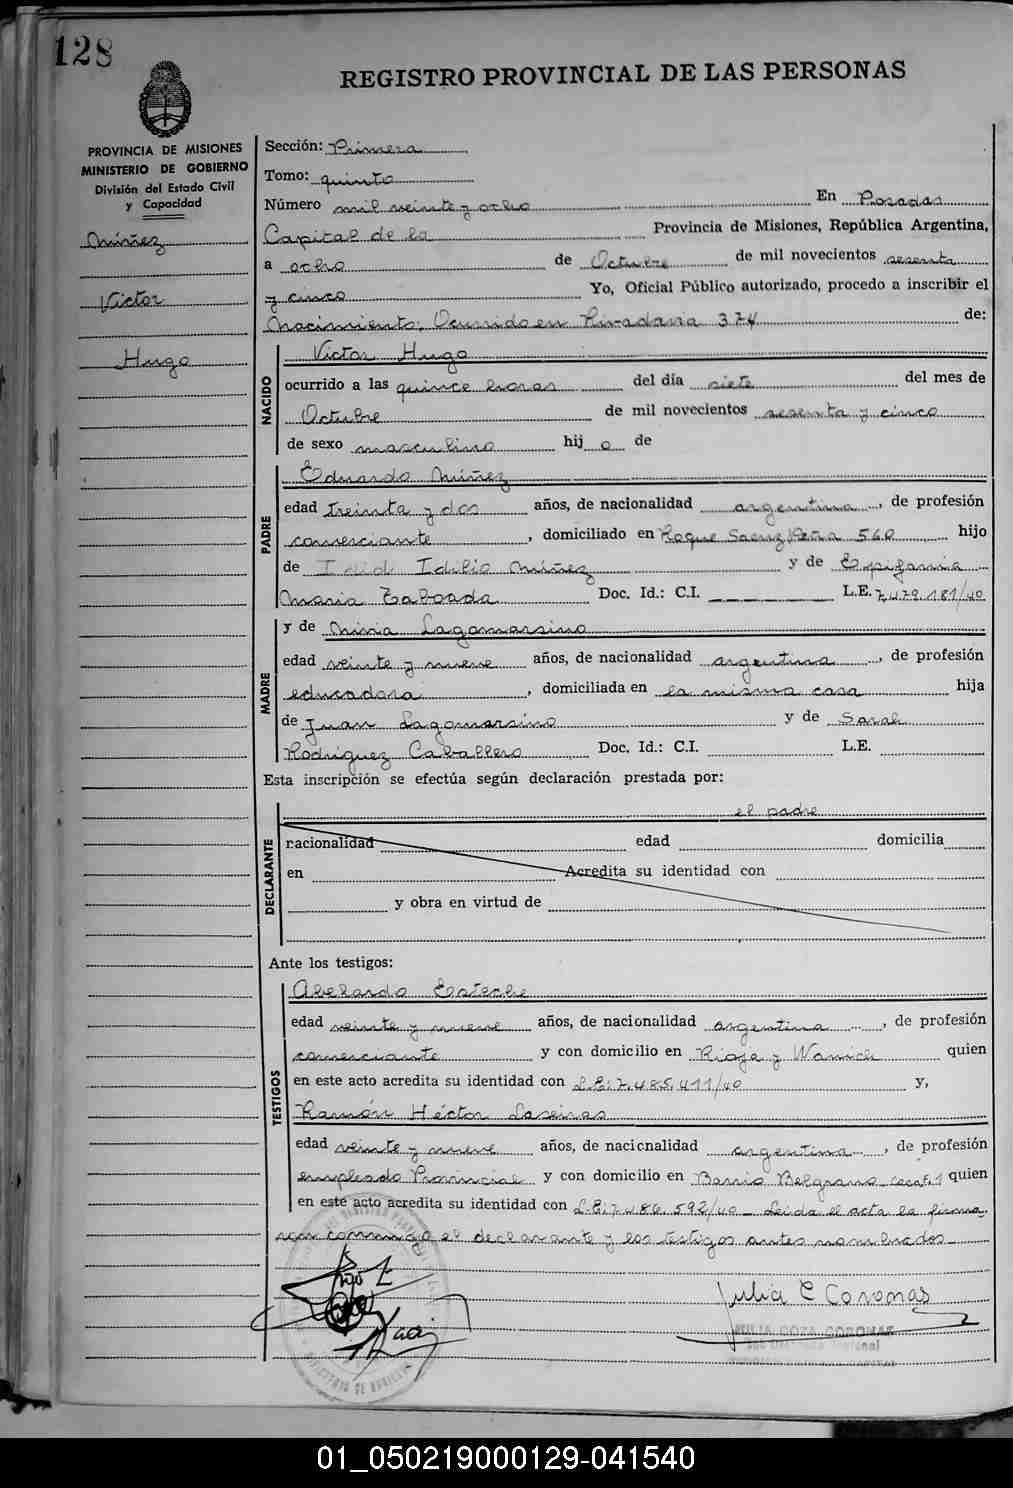 128
REGISTRO PROVINCIAL DE LAS PERSONAS
PROVINCIA DE MISIONES
MINISTERIO DE GOBIERNO
División del Estado Civil
y Capacidad
Núñez
Victor
Hugo
Sección: Primera
Tomo: quinto
Número mil veinte y ocho En Posadas
Capital de la Provincia de Misiones, República Argentina,
a ocho de Octubre de mil novecientos sesenta
y cinco Yo, Oficial Público autorizado, procedo a inscribir el
Nacimiento: Ocurrido en Rivadavia 374 de:
NACIDO
Victor Hugo
ocurrido a las quince horas del día siete del mes de
Octubre de mil novecientos sesenta y cinco
de sexo masculino hij o de
PADRE
Eduardo Núñez
edad treinta y dos años, de nacionalidad argentina, de profesión
comerciante, domiciliado en Roque Saenz Peña 560 hijo
de Idilio Núñez y de Epifania
Maria Taboada Doc. Id.: C.I. L.E. 7.479.181/40
MADRE
y de Niria Lagomarsino
edad veinte y nueve años, de nacionalidad argentina, de profesión
educadora, domiciliada en la misma casa hija
de Juan Lagomarsino y de Sarah
Rodríguez Caballero Doc. Id.: C.I. L.E.
Esta inscripción se efectúa según declaración prestada por:
DECLARANTE
el padre
nacionalidad edad domicilia
en Acredita su identidad con
y obra en virtud de
Ante los testigos:
TESTIGOS
Abelardo Esteche
edad veinte y nueve años, de nacionalidad argentina, de profesión
comerciante y con domicilio en Rioja y quien
en este acto acredita su identidad con L.E: 7.485.411/40 y,
Ramón Héctor
edad veinte y nueve años, de nacicnalidad argentina, de profesión
empleado Provincial y con domicilio en Barrio Belgrano quien
en este acto acredita su identidad con L.E: 7.486.592/40 Leida el acta la firma
conmigo el declarante y los testigos antes nombrados
Julia C Coronas
01_050219000129-041540